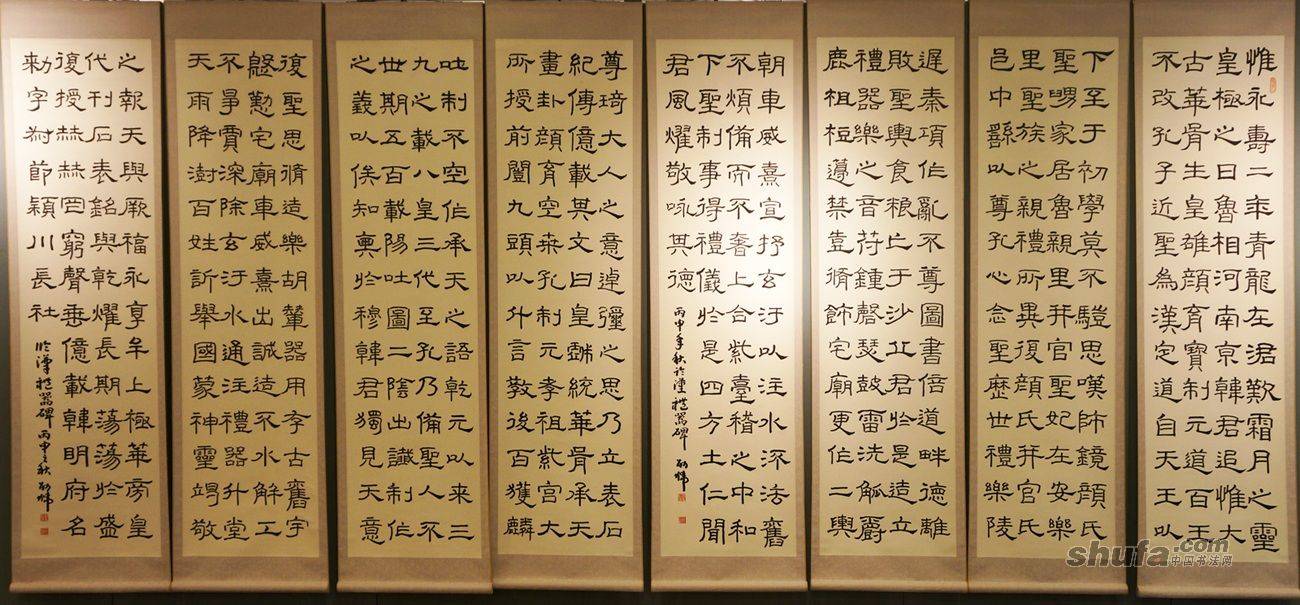 惟永壽二年青龍在涒歎霜月之靈
皇極之日魯相河南京韓君追惟大
古華胥生皇雄顏育寶制元道百王
不改孔子近聖為漢定道自天王以
下至于初學莫不騹思嘆師鏡顏氏
聖舅家居魯親里并官聖妃在安樂
里聖族之親禮所異復顏氏并官氏
邑中繇以尊孔心念聖歷世禮樂陵
遲秦項作亂不尊圖書倍道畔德離
敗聖輿食糧亡于沙丘君於是造立
禮器樂之音苻鍾磬瑟鼓雷洗觚爵
鹿柤梪籩禁壺脩飾宅廟更作二輿
朝車威熹宣抒玄汙以注水流法舊
不煩備而不奢上合紫臺稽之中和
下聖制事得禮儀於是四方土仁聞
君風燿敬咏其德
丙申年秋臨漢禮器碑
尊琦大人之意逴彌之思乃立表石
紀傳億載其文曰皇戲統華胥承天
畫卦顏育空桒孔制元孝祖紫宮大
所授前闓九頭以什言教後百獲麟
吐制不空作承天之語乾元以來三
九之載八皇三代至孔乃備聖人不
世期五百載陽吐圖二陰出讖制作
之義以俟知奧於穆韓君獨見天意
復聖思脩造樂胡輦器用存古舊宇
慇懃宅廟車威熹出誠造不水解工
不爭賈深除玄汙水通注禮器升堂
天雨降澍百姓訢舉國蒙神靈竭敬
之報天與厥福永享牟上極華旁皇
代刊石表銘與乾燿長期蕩蕩於盛
復授赫赫罔窮聲垂億載韓明府名
勅字叔節潁川長社
臨漢禮器碑丙申之秋
shufa.com
中国书法网